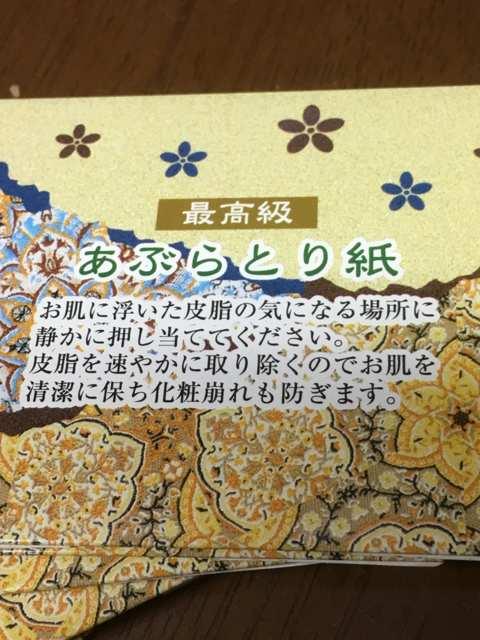 最高級
あぶらとり紙
お肌に浮いた皮脂の気になる場所に
静かに押し当ててください。
皮脂を速やかに取り除くのでお肌を
清潔に保ち化粧崩れも防ぎます。